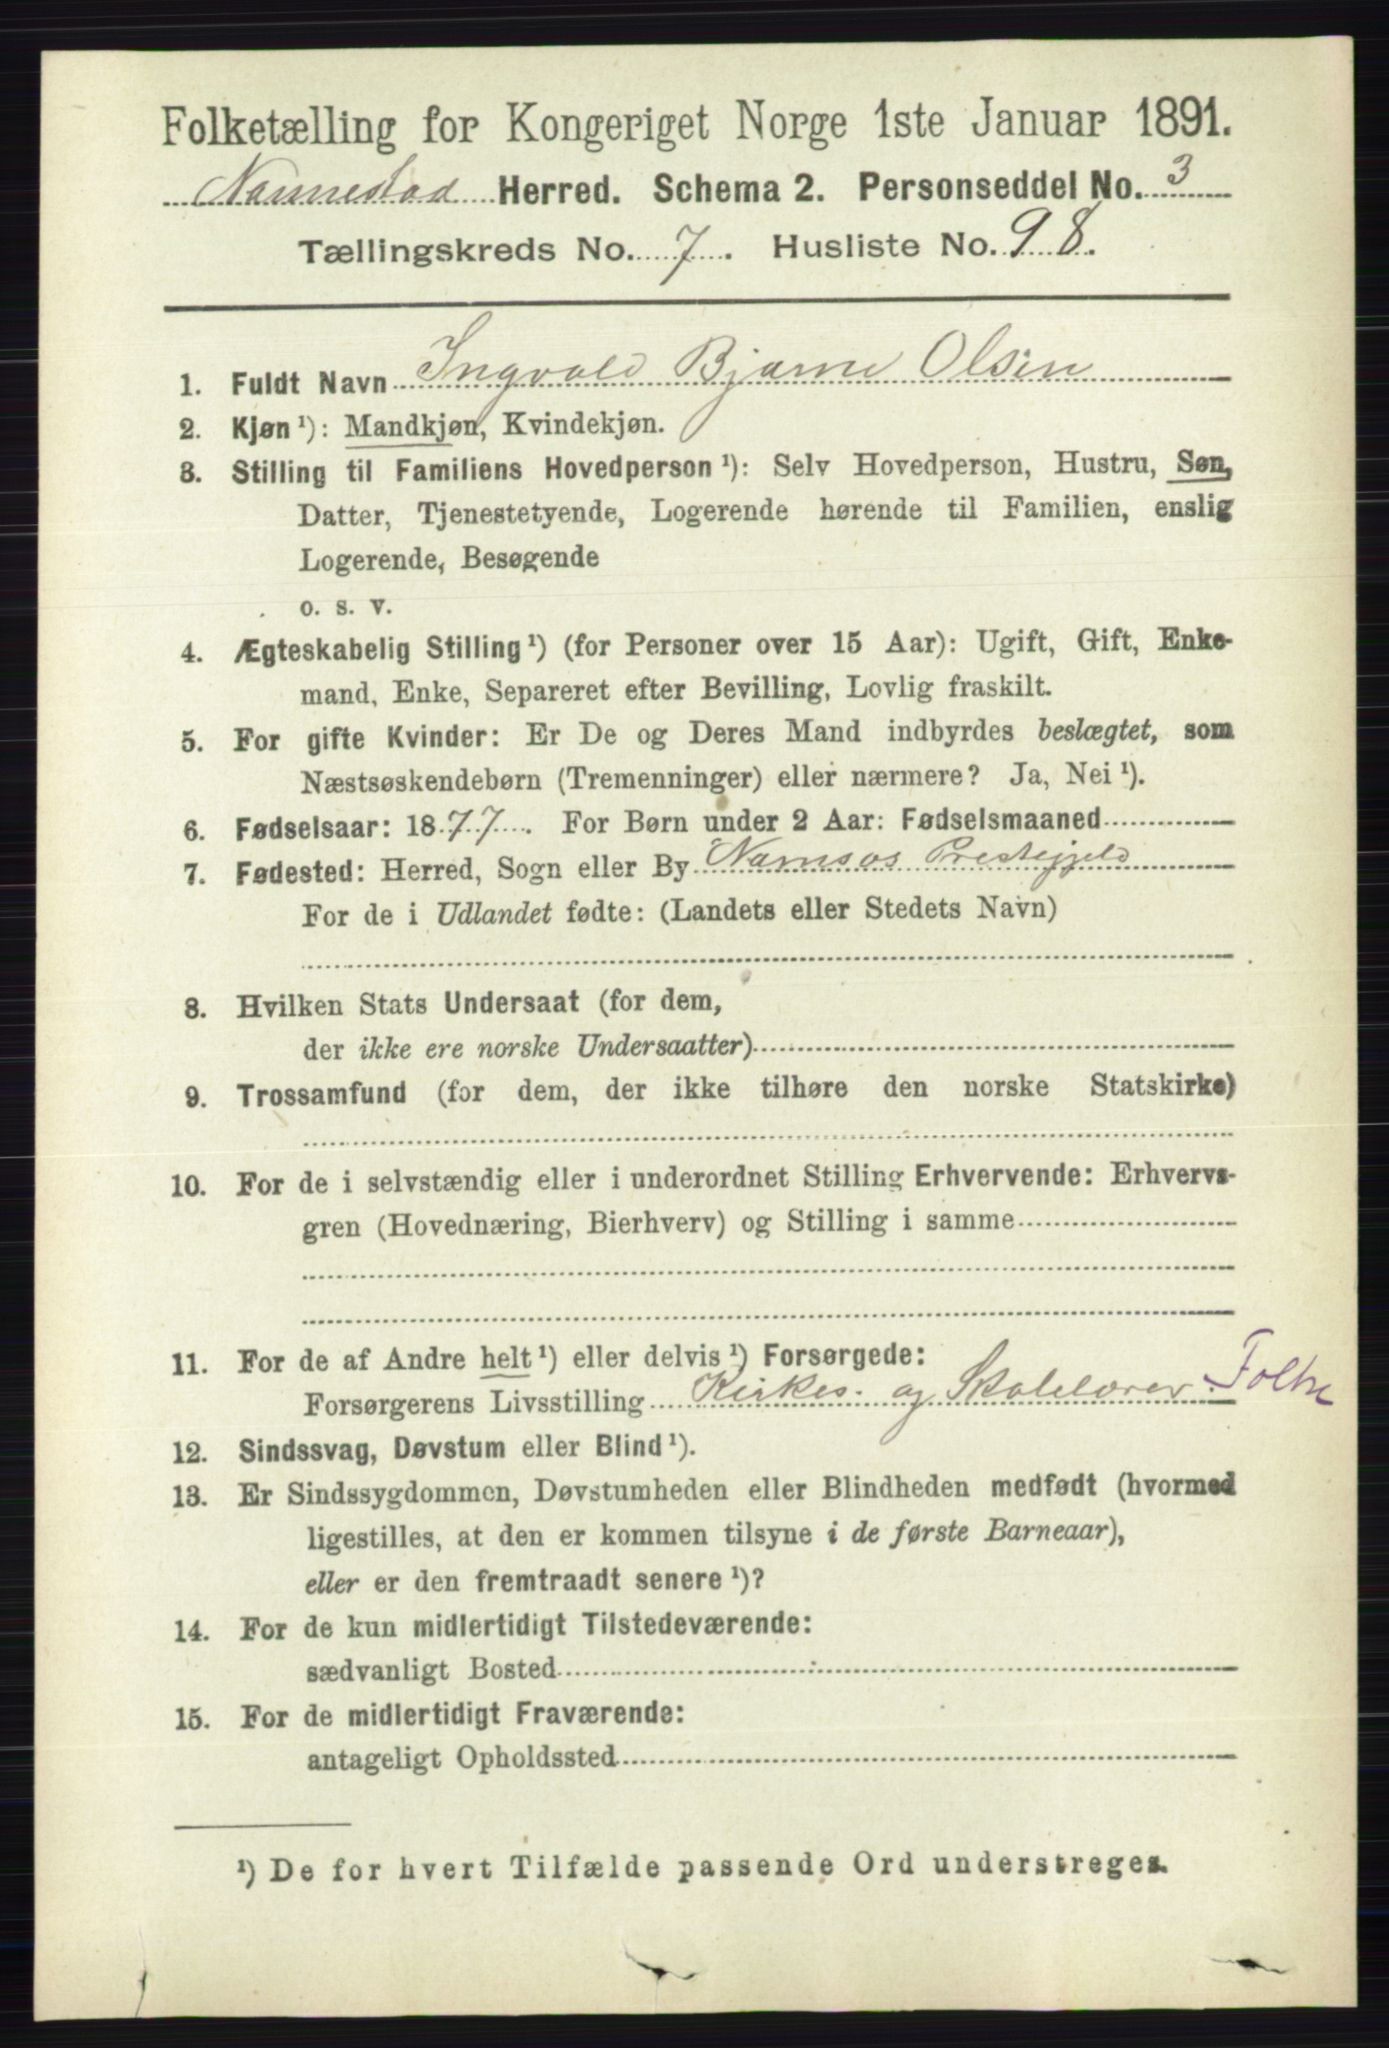 Folketælling for Kongeriget Norge 1ste Januar 1891.
Nannestad Herred. Schema 2. Personseddel No. 3
Tællingskreds No. 7. Husliste No. 98.
1. Fuldt Navn Ingvald Bjarne Olsen
2. Kjøn¹): Mandkjøn, Kvindekjøn.
3. Stilling til Familiens Hovedperson¹): Selv Hovedperson, Hustru, Søn,
Datter, Tjenestetyende, Logerende hørende til Familien, enslig
Logerende, Besøgende
o. s. v.
4. Ægteskabelig Stilling¹) (for Personer over 15 Aar): Ugift, Gift, Enke-
mand, Enke, Separeret efter Bevilling, Lovlig fraskilt.
5. For gifte Kvinder: Er De og Deres Mand indbyrdes beslægtet, som
Næstsøskendebørn (Tremenninger) eller nærmere? Ja, Nei¹).
6. Fødselsaar: 1877. For Børn under 2 Aar: Fødselsmaaned
7. Fødested: Herred, Sogn eller By Namsos Prestegjeld
For de i Udlandet fødte: (Landets eller Stedets Navn)
8. Hvilken Stats Undersaat (for dem,
der ikke ere norske Undersaatter)
9. Trossamfund (for dem, der ikke tilhøre den norske Statskirke)
10. For de i selvstændig eller i underordnet Stilling Erhvervende: Erhvervs-
gren (Hovednæring, Bierhverv) og Stilling i samme
11. For de af Andre helt¹) eller delvis¹) Forsørgede:
Forsørgerens Livsstilling Kirkes- og Skolelærer.
12. Sindssvag, Døvstum eller Blind¹).
13. Er Sindssygdommen, Døvstumheden eller Blindheden medfødt (hvormed
ligestilles, at den er kommen tilsyne i de første Barneaar),
eller er den fremtraadt senere¹)?
14. For de kun midlertidigt Tilstedeværende:
sædvanligt Bosted
15. For de midlertidigt Fraværende:
antageligt Opholdssted
¹) De for hvert Tilfælde passende Ord understreges.